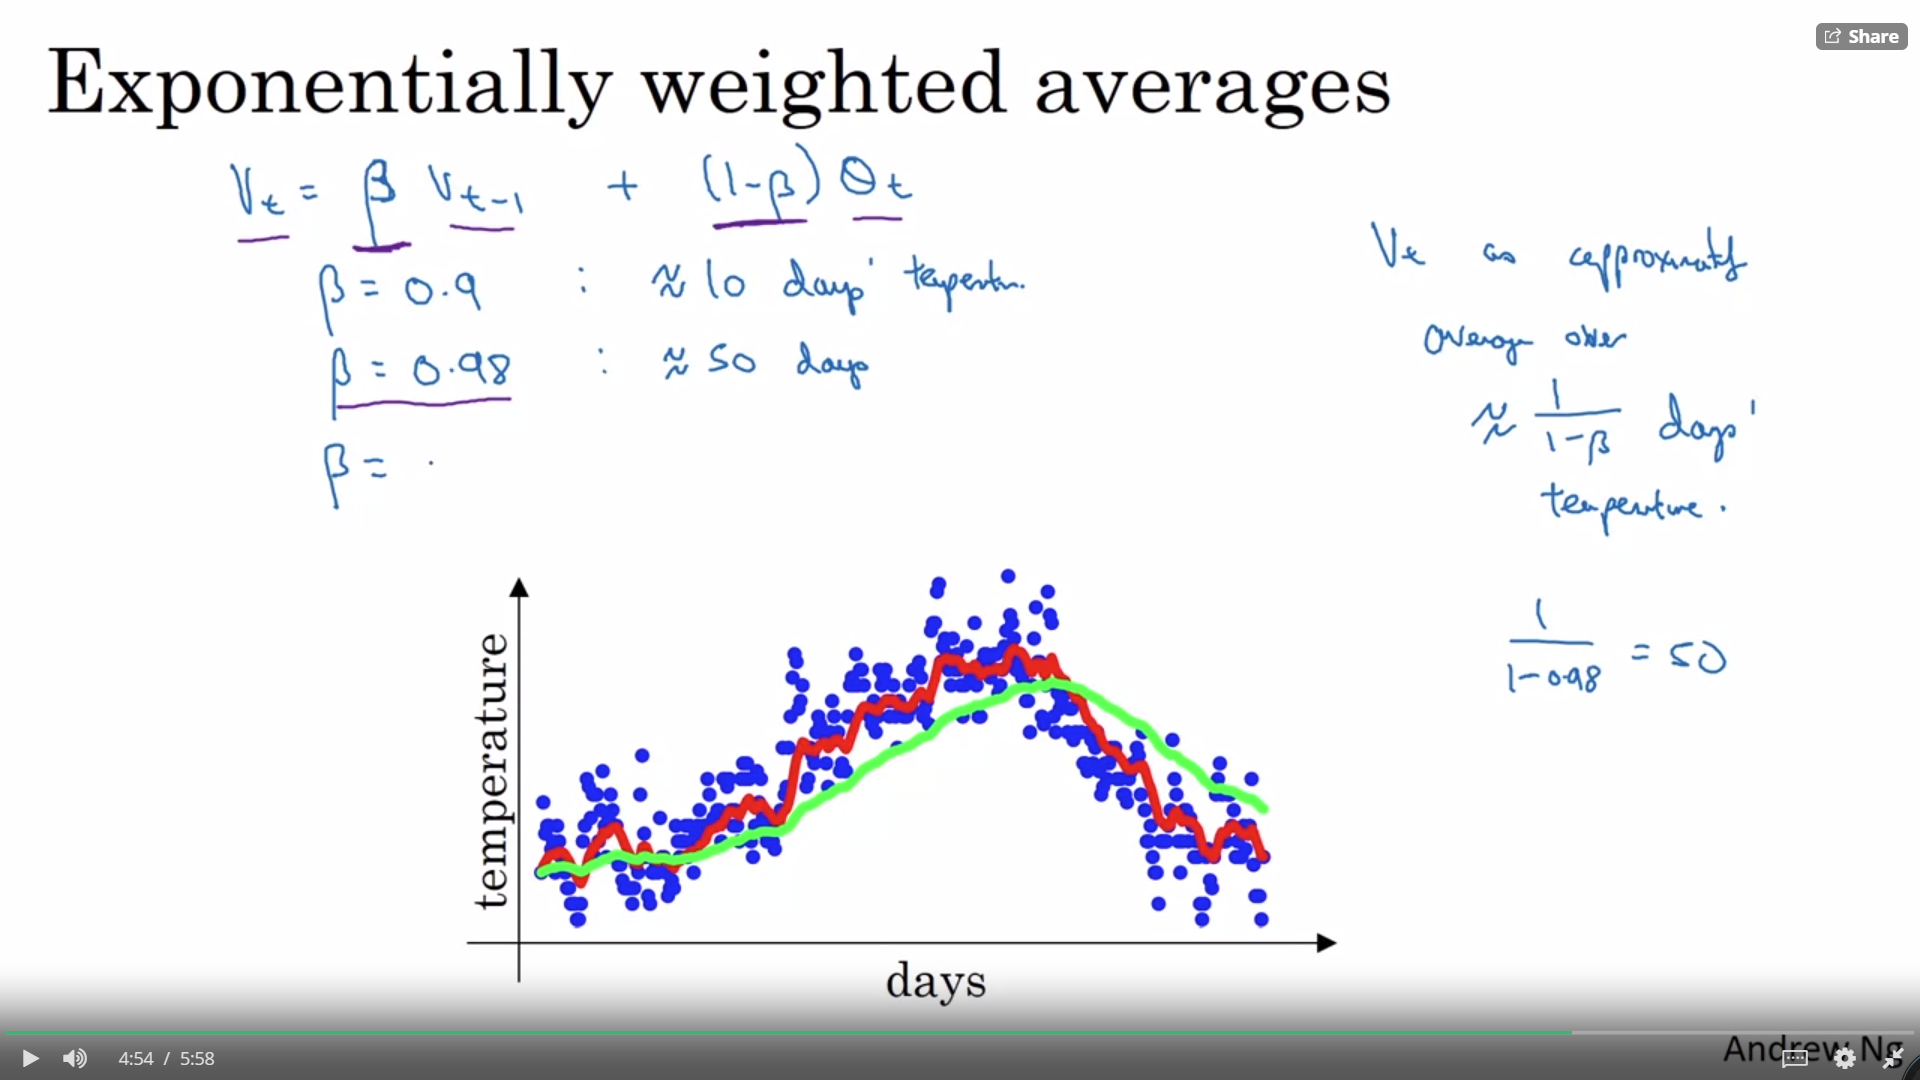 Share
Exponentially weighted averages
Vt = β Vt-1 + (1-β) θt
β = 0.9 : ≈ 10 days' temperatur.
β = 0.98 : ≈ 50 days
β = .
Vt as approximately
average over
≈ 1/(1-β) days'
temperature.
1/(1-0.98) = 50
temperature
days
Andrew Ng
4:54 / 5:58